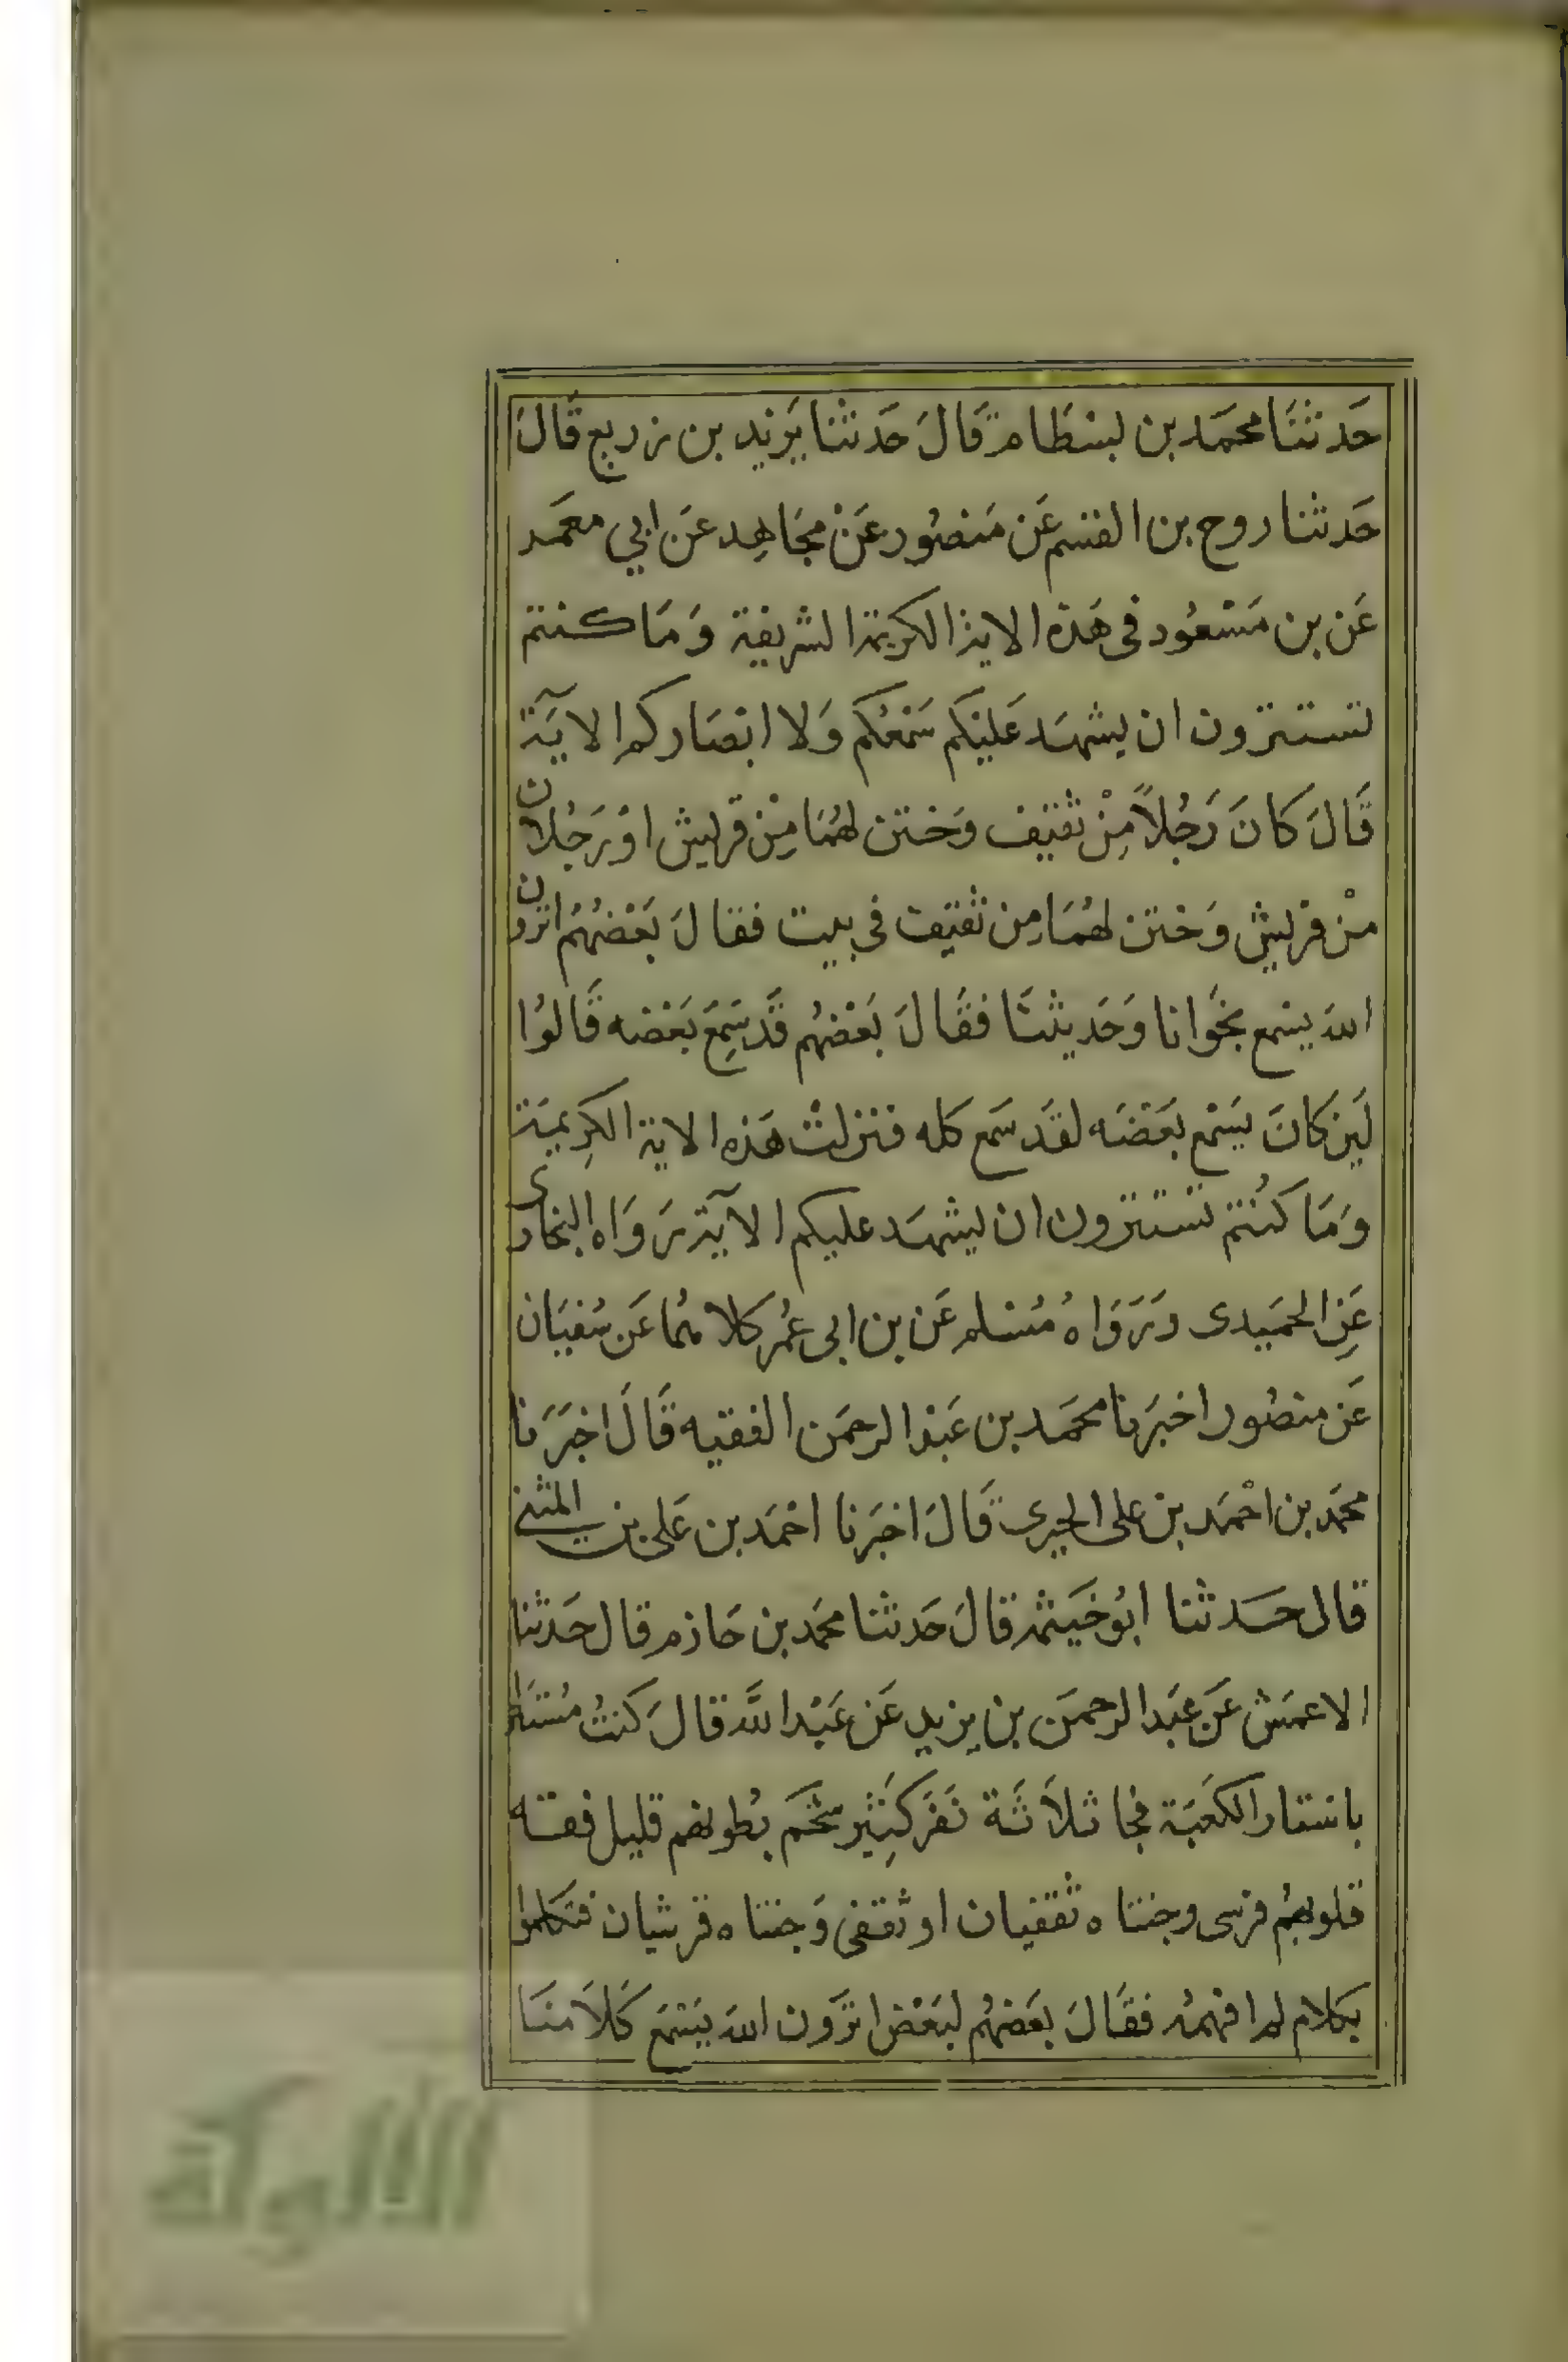 حَدثنَا محمَد بن بسْطَام قَالَ حَدثنا يَزيد بن زريع قَالَ
حَدثنا روح بن القسم عَن مَنصُور عَنْ مجَاهِد عَن ابي معمَر
عَن بن مَسْعُود فى هَذه الاية الكريمة الشريفة وَمَا كنتم
تستترون ان يشهَد عَليْكم سَمْعُكم وَلا ابْصَاركم الآيَة
قَالَ كانَ رَجُلاً مِنْ ثقيف وَختن لهُمَا مِنْ قريش اوْ رَجُلان
منْ قريش وَختن لهُمَا مِن ثقيف فى بيت فقالَ بَعْضُهُم اترون
الله يسمع نجوَانا وَحَديثنَا فقَالَ بَعْضهُم قَد سَمِعَ بَعْضه قَالوُا
لَين كَانَ يَسْمع بَعْضَه لقَد سَمع كله فنزلتْ هَذه الاية الكرِيمَة
وَمَا كنُتم تستترون ان يشهَد عليكم الآيَة رَوَاه البخارى
عَنِ الحمَيدى وَرَوَاهُ مُسْلم عَن بن ابى عُمر كلاهُما عَن سُفيَان
عَن منصُور اخبَرنا محمَد بن عَبْد الرحمَن الفقيه قَالَ اخبَرَنا
محمَد بن احْمَد بن على الحيرى قَالَ اخبَرنا احْمَد بن عَلى بن المثنى
قال حَدثنا ابُو خيَثمة قالَ حَدثنا محمَد بن حَازم قال حَدثنا
الاعمَش عَن عَبَد الرحمَن بن يزيد عَن عَبْد اللَّه قالَ كنتُ مُسْتَترا
باستار الكعَبَة فجا ثلاَثَة نَفَر كَثِير شَحْم بُطونهم قليل فقه
قلوبهُم قرسى وختناه ثقفيان او ثقفى وَختناه قرشيان فتكلموا
بكلام لم افهمهُ فقَالَ بعَضهُم لبَعْض اترَون اللهَ يَسْمَع كَلاَمنَا
الألوكة